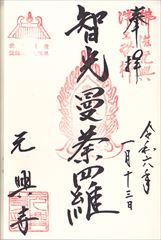 奉拝
令和六年
一月十三日
智光曼荼羅
元興寺